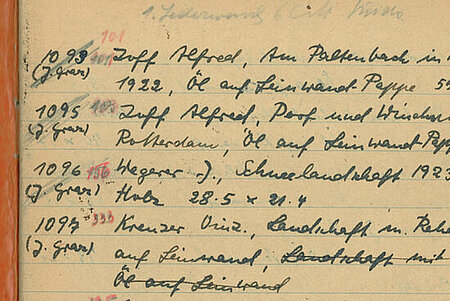 101
1093 Zoff Alfred, Am Paltenbach in
(J. Graz) 1922, Öl auf Leinwand-Pappe 5
1095 103 Zoff Alfred, Dorf und
(J. Graz) Rotterdam, Öl auf Leinwand Papp
1096 156 Wegerer J., Schneelandschaft 1923
(J. Graz) Holz 28.5 x 21.4
1097 333 Krenzer Vinz., Landschaft m.
(J. Graz) auf Leinwand, Landschaft mit
Öl auf Leinwand